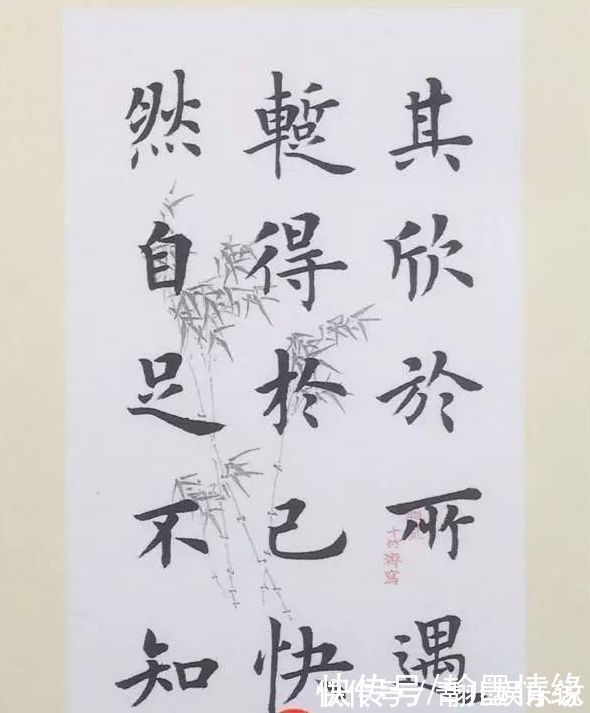 其欣於所遇
暫得於己快
然自足不知
十竹齋寫
快传号/翰墨情缘